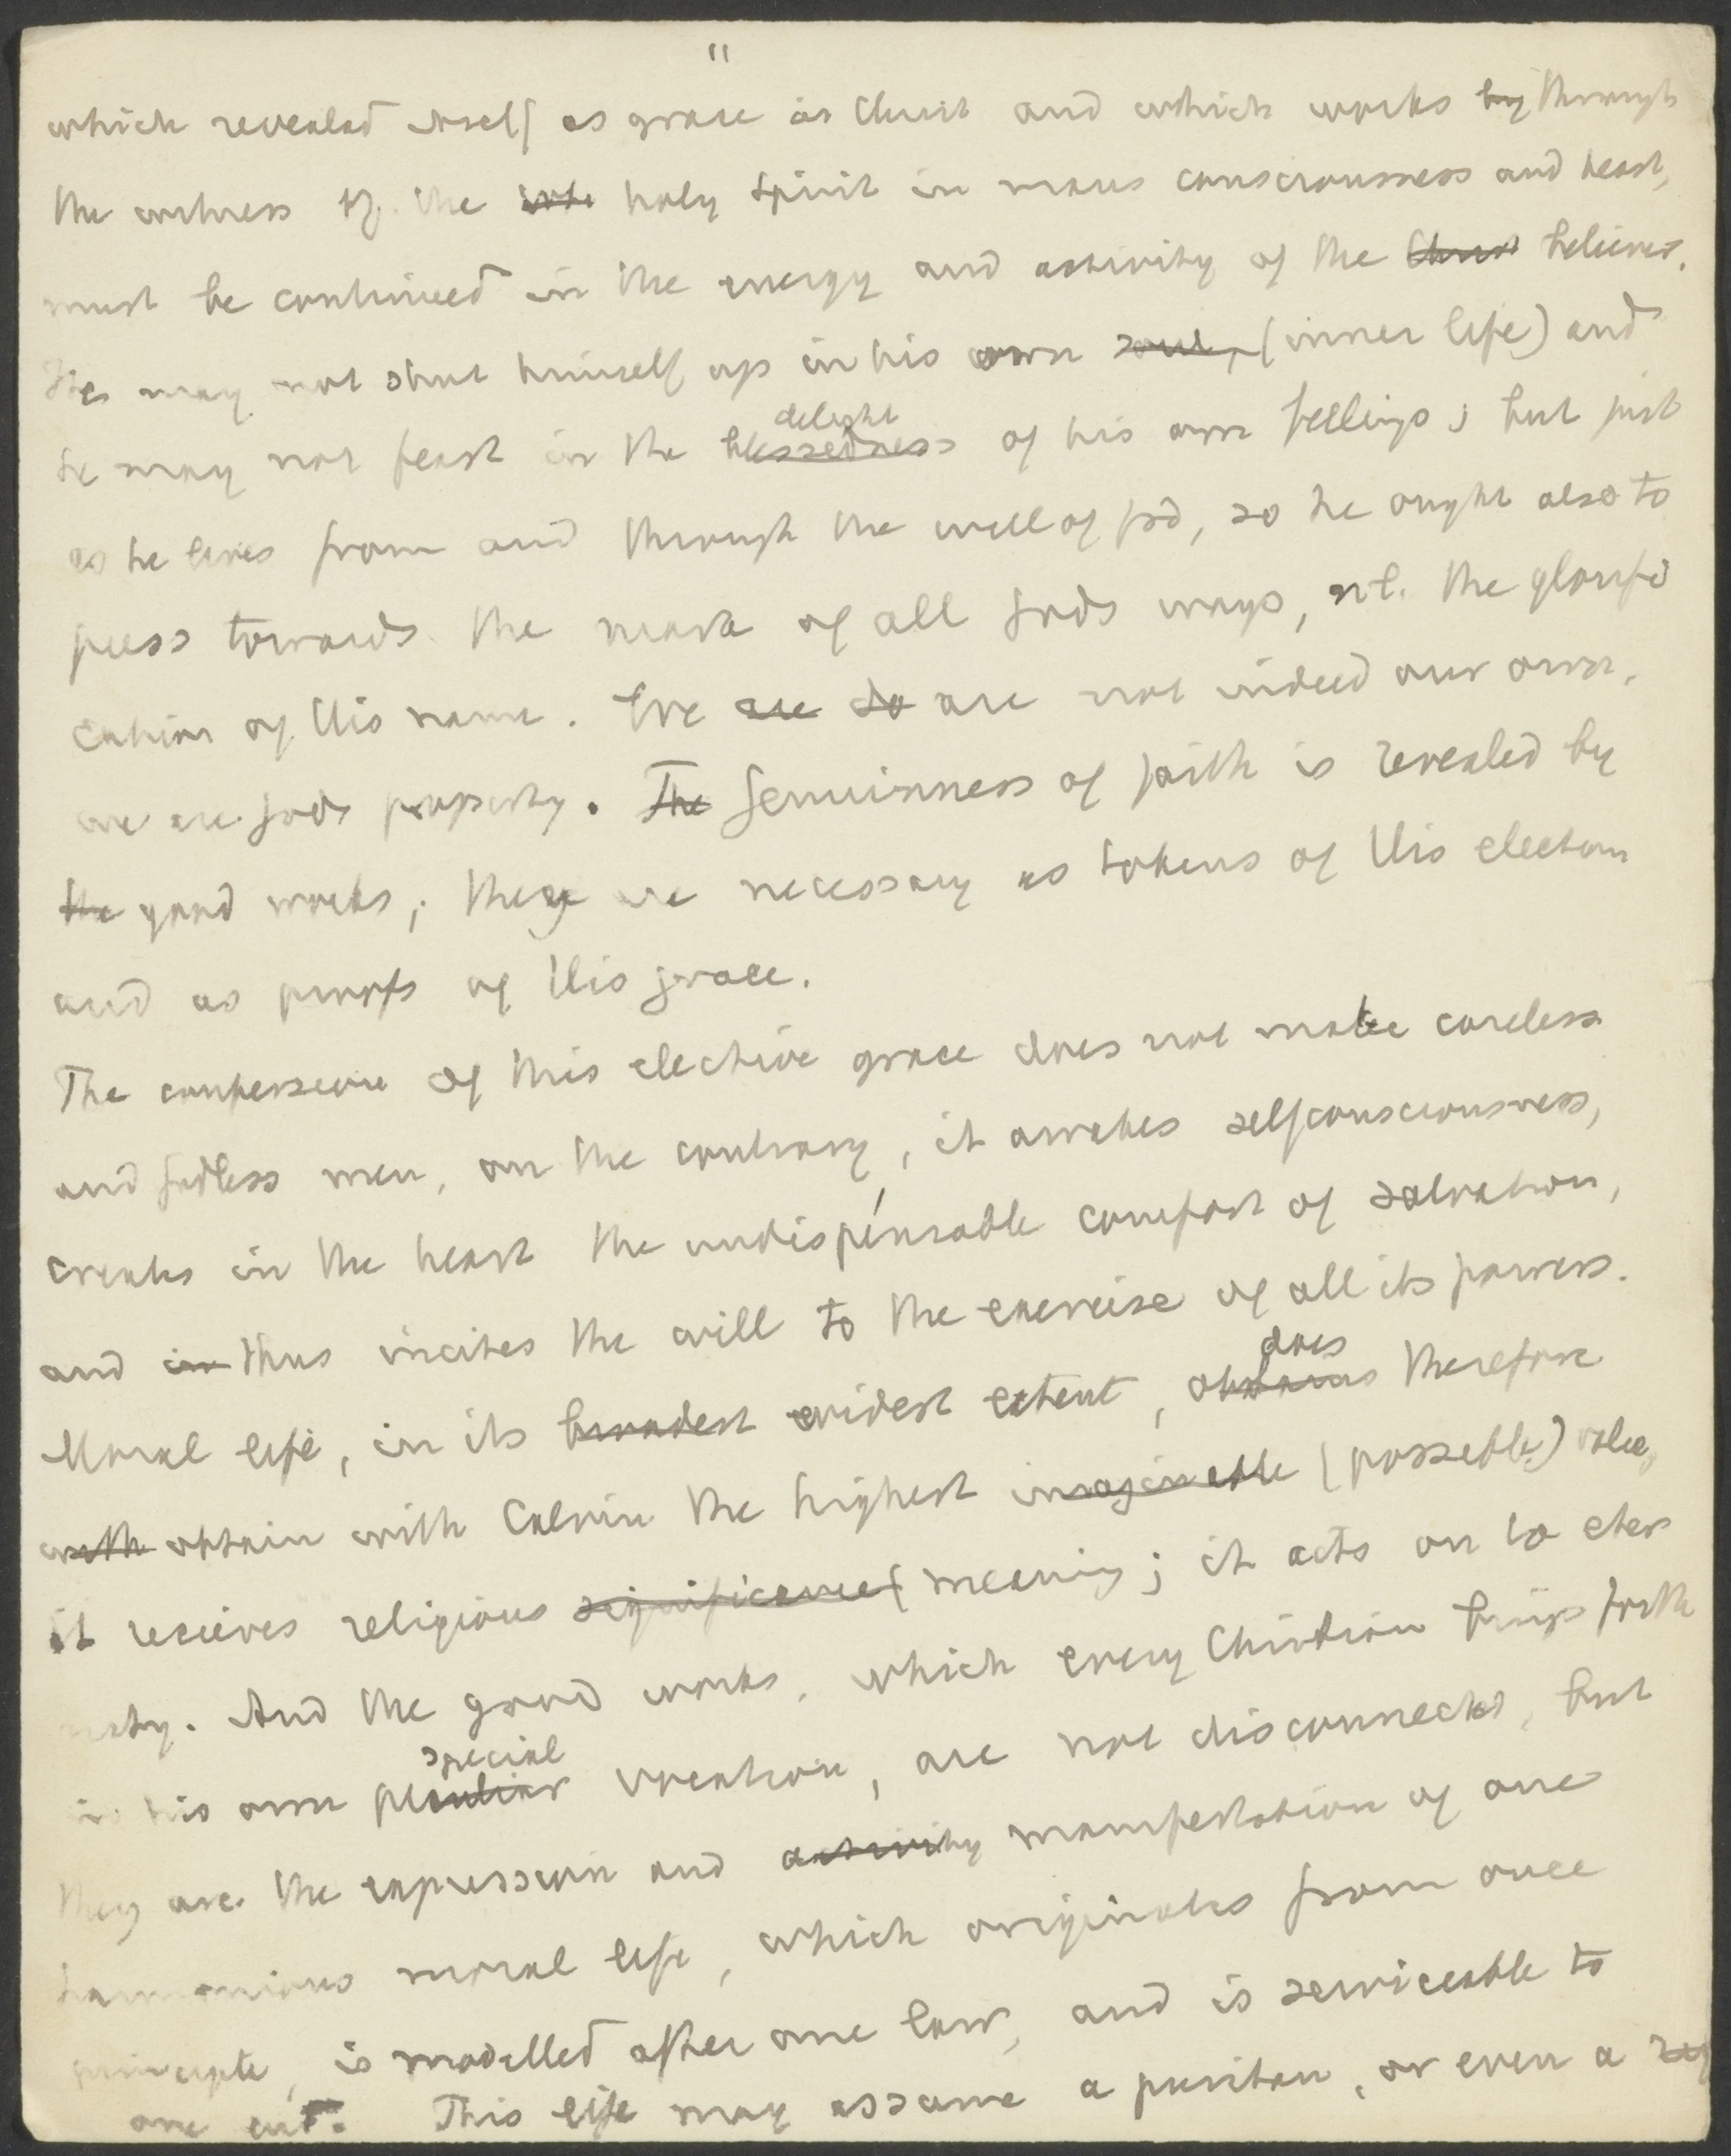 11
which revealed itself as grace in Christ and which works by through
the witness of the holy Spirit in mans consciousness and heart,
must be continued in the energy and activity of the Christ believer.
He may not shut himself up in his own soul, (inner life) and
delight
he may not feast in the blessedness of his own feelings; but just
as he lives from and through the will of god, so he ought also to
press towards the mark of all gods ways, nl. the glorifi
cation of His name. We are do are not indeed our own,
we are gods property. The genuinness of faith is revealed by
the good works; they are necessary as tokens of His election
and as proofs of His grace.
The confession of this elective grace does not make careless
and godless men, on the contrary, it awakes selfconsciousness,
creates in the heart the undispensable comfort of salvation,
and in thus incites the will to the exercise of all its powers.
does
Moral life, in its broadest widest extent, obtains therefore
with obtain with Calvin the highest imaginable (possible) value,
it recieves religious significance( meaning; it acts on to eter
nity. And the good works, which every Christian brings forth
special
in his own peculiar vocation, are not disconnected, but
they are the expression and activity manifestation of one
harmonious moral life, which originates from one
principle, is modelled after one law, and is serviceable to
one end. This life may assume a puritan, or even a